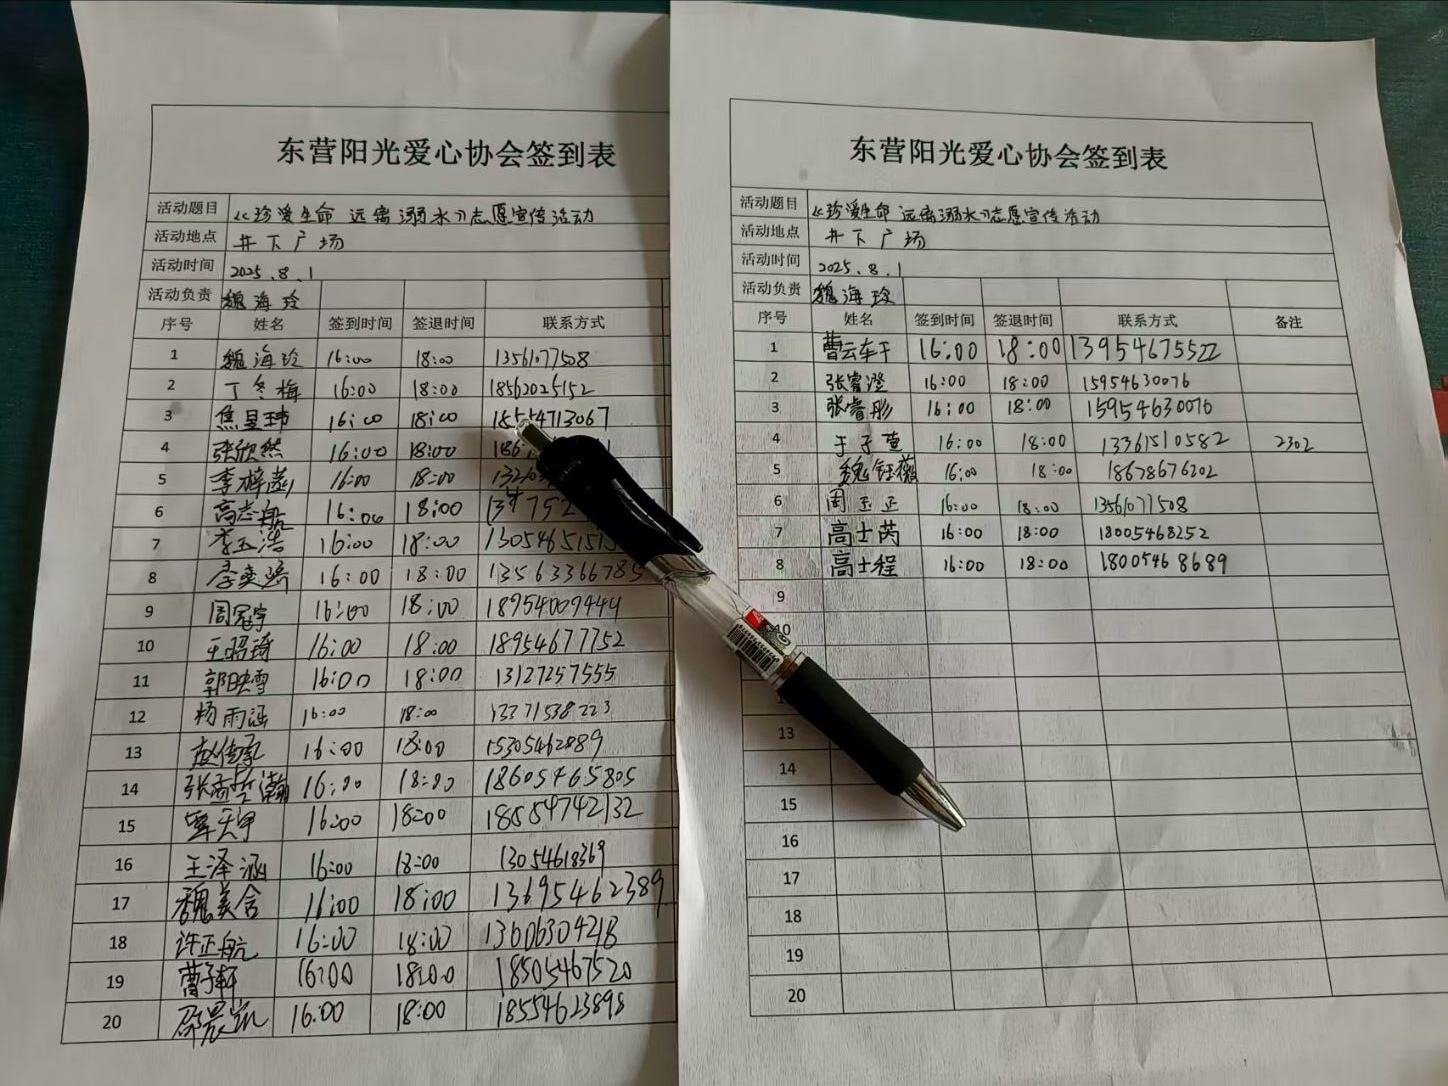 东营阳光爱心协会签到表
活动题目 《珍爱生命 远离溺水》志愿宣传活动
活动地点 井下广场
活动时间 2025.8.1
活动负责 魏海玲
序号 姓名 签到时间 签退时间 联系方式
1 魏海玲 16:00 18:00 13561077508
2 丁冬梅 16:00 18:00 18562025152
3 焦昱玮 16:00 18:00 18554713067
4 张欣然 16:00 18:00
5 李梓菡 16:00 18:00
6 高志航 16:00 18:00
7 李玉浩 16:00 18:00
8 李奕璐 16:00 18:00 13563366785
9 周冠宇 16:00 18:00 18954009444
10 王昭琦 16:00 18:00 18954677752
11 郭映雪 16:00 18:00 13127257555
12 杨雨涵 16:00 18:00 13371538223
13 赵传承 16:00 18:00 15305462889
14 张孟哲瀚 16:00 18:00 18605465805
15 16:00 18:00 18554742132
16 王泽涵 16:00 18:00 13054618369
17 魏美含 16:00 18:00 13695462389
18 许正航 16:00 18:00 13606304218
19 曹子轩 16:00 18:00 18505467520
20 16:00 18:00 18554623898
东营阳光爱心协会签到表
活动题目 《珍爱生命 远离溺水》志愿宣传活动
活动地点 井下广场
活动时间 2025.8.1
活动负责 魏海玲
序号 姓名 签到时间 签退时间 联系方式 备注
1 曹云车干 16:00 18:00 13954675522
2 张睿澄 16:00 18:00 15954630076
3 张睿彤 16:00 18:00 15954630076
4 于子萱 16:00 18:00 13361510582 2302
5 魏钰薇 16:00 18:00 18678676202
6 周玉正 16:00 18:00 13561077508
7 高士芮 16:00 18:00 18005468252
8 高士程 16:00 18:00 18005468689
9
10
13
14
15
16
17
18
19
20